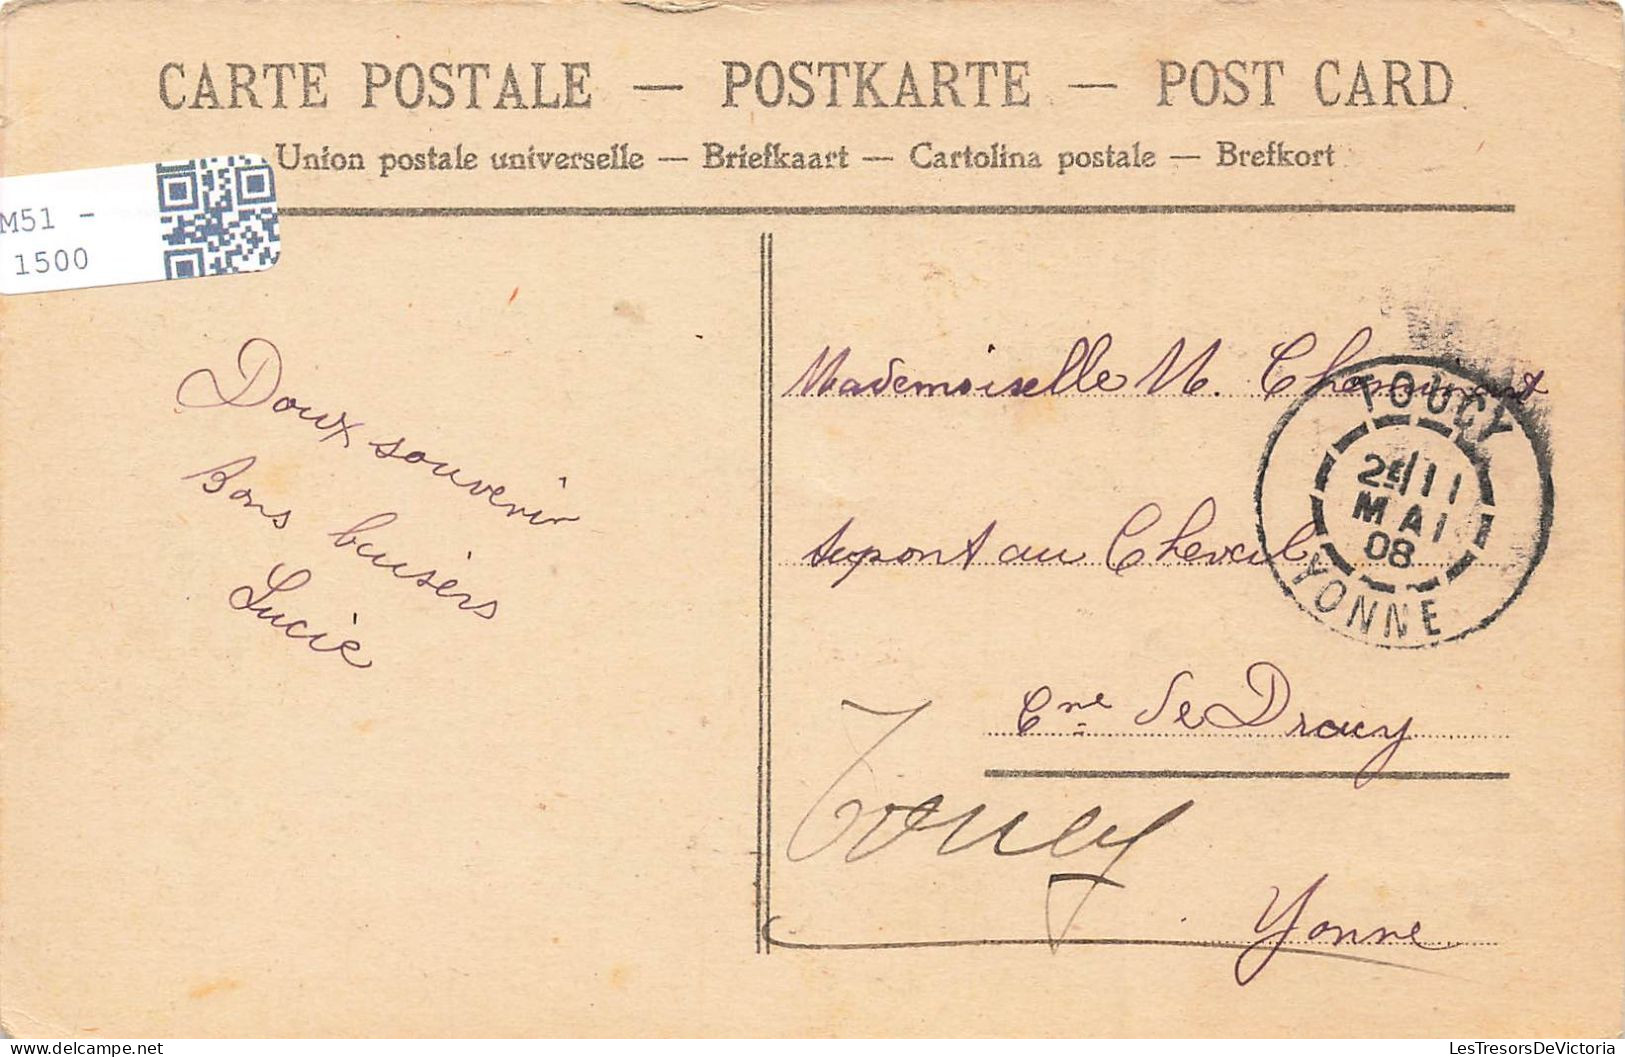 CARTE POSTALE — POSTKARTE — POST CARD
Union postale universelle — Briefkaart — Cartolina postale — Brefkort
M51 -
1500
Doux souvenir
Bons baisers
Lucie
Mademoiselle M.
au Cheval
Cne de Dracy
Toucy
Yonne
TOUCY
2E/11
MAI
08
YONNE
LesTresorsDeVictoria